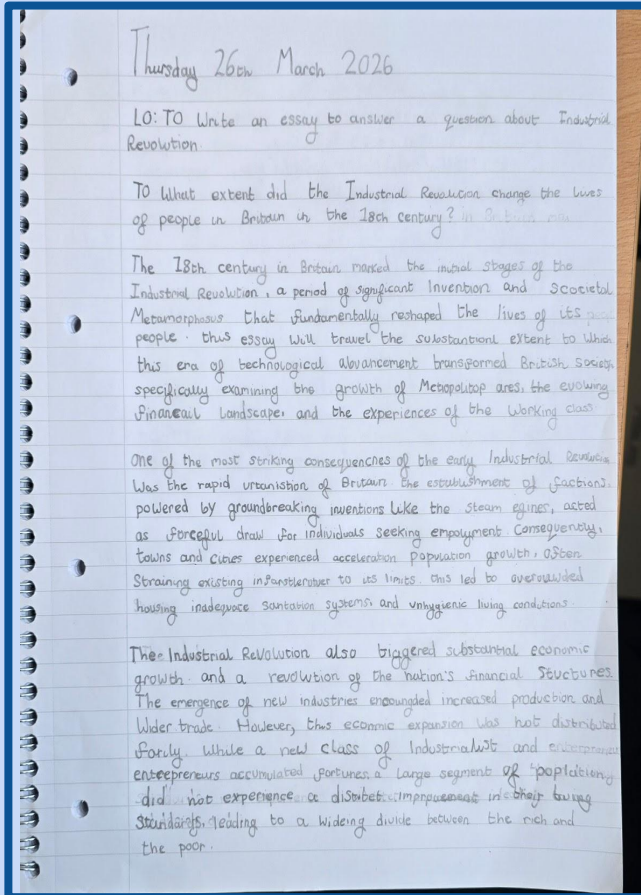 Thursday 26th March 2026
LO: TO Write an essay to answer a question about Industrial
Revolution
To What extent did the Industrial Revalution change the lives
of people in Britain in the 18th century?
The 18th century in Britain marked the initial stages of the
Industrial Revolution, a period of significant Invention and Scocietal
Metamorphosus that fundamentally reshaped the lives of its
people. this essay will travel the substantionl extent to which
this era of technological abvancement transformed British society
specifically examining the growth of Metropolitop ares, the evolving
financail landscape, and the experiences of the Working class
One of the most striking consequencnes of the early Industrial Revolution
Was the rapid urbanistion of Britain the establishment of factions,
powered by groundbreaking inventions Like the steam eginer, acted
as forceful draw for individuals seeking empolyment Consequently,
towns and cities experienced acceleration population growth, often
Straining existing to its limits. this led to overouwded
housing inadequace sanitation systems, and unhygienic living conditions.
The Industrial Revolution also triggered substantial economic
growth and a revolution of the nation's financial Stuctures.
The emergence of new industries encounged increased production and
Wider trade. However, this econmic expansion was not distributed
farily. While a new class of Industrialist and
entrepreneurs accumulated fortunes, a large segment of poplation,
did not experience a improvement in their
Standards, leading to a wideing divide between the rich and
the poor.